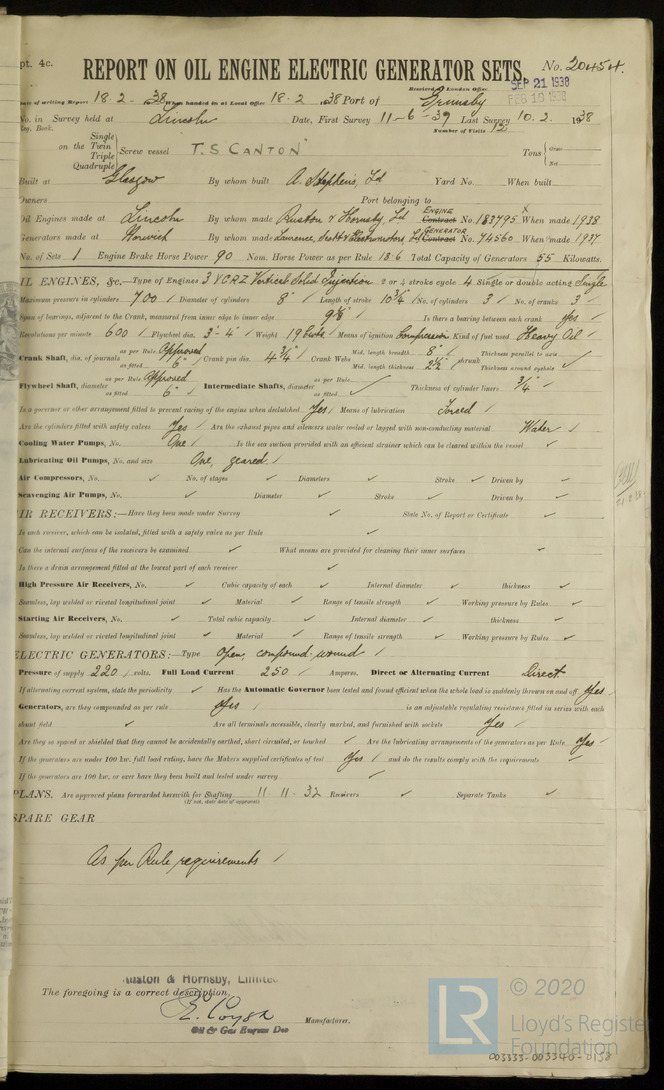 pt. 4c.
REPORT ON OIL ENGINE ELECTRIC GENERATOR SETS. No. 20454.
Received at London Office SEP 21 1938
FEB 19 1938
Date of writing Report 18-2-38 When handed in at Local Office 18-2-1938 Port of Grimsby
No. in Survey held at Lincoln Date, First Survey 11-6-37 Last Survey 10.2.1938
Reg. Book. Number of Visits 12
Single
on the Twin
Triple
Quadruple
Screw vessel T.S CANTON Tons Gross
Net
Built at Glasgow By whom built A. Stephens, Ld Yard No. When built
Owners Port belonging to
Oil Engines made at Lincoln By whom made Ruston & Hornsby, Ld ENGINE Contract No. 183795 X When made 1938
Generators made at Norwich By whom made Laurence, Scott & Electromotors, Ld GENERATOR Contract No. 74560 When made 1937
No. of Sets 1 Engine Brake Horse Power 90 Nom. Horse Power as per Rule 18.6 Total Capacity of Generators 55 Kilowatts.
OIL ENGINES, &c.—Type of Engines 3 VCRZ Vertical Solid Injection 2 or 4 stroke cycle 4 Single or double acting Single
Maximum pressure in cylinders 700 Diameter of cylinders 8" Length of stroke 10¾ No. of cylinders 3 No. of cranks 3
Span of bearings, adjacent to the Crank, measured from inner edge to inner edge Is there a bearing between each crank Yes
Revolutions per minute 600 Flywheel dia. 3'-4" Weight 19 Cwts Means of ignition Compression Kind of fuel used Heavy Oil
Crank Shaft, dia. of journals as per Rule Approved as fitted 6" Crank pin dia. 4¾" Crank Webs Mid. length breadth 8" Mid. length thickness 2½" shrunk Thickness parallel to axis ✓ Thickness around eyehole ✓
Flywheel Shaft, diameter as per Rule Approved as fitted 6" Intermediate Shafts, diameter as per Rule as fitted ✓ Thickness of cylinder liners ¾"
Is a governor or other arrangement fitted to prevent racing of the engine when declutched Yes Means of lubrication Forced
Are the cylinders fitted with safety valves Yes Are the exhaust pipes and silencers water cooled or lagged with non-conducting material Water
Cooling Water Pumps, No. One Is the sea suction provided with an efficient strainer which can be cleared within the vessel ✓
Lubricating Oil Pumps, No. and size One, geared.
Air Compressors, No. ✓ No. of stages ✓ Diameters ✓ Stroke ✓ Driven by ✓
Scavenging Air Pumps, No. ✓ Diameter ✓ Stroke ✓ Driven by ✓
AIR RECEIVERS:—Have they been made under Survey ✓ State No. of Report or Certificate ✓
Is each receiver, which can be isolated, fitted with a safety valve as per Rule ✓
Can the internal surfaces of the receivers be examined ✓ What means are provided for cleaning their inner surfaces ✓
Is there a drain arrangement fitted at the lowest part of each receiver ✓
High Pressure Air Receivers, No. ✓ Cubic capacity of each ✓ Internal diameter ✓ thickness ✓
Seamless, lap welded or riveted longitudinal joint ✓ Material ✓ Range of tensile strength ✓ Working pressure by Rules ✓
Starting Air Receivers, No. ✓ Total cubic capacity ✓ Internal diameter ✓ thickness ✓
Seamless, lap welded or riveted longitudinal joint ✓ Material ✓ Range of tensile strength ✓ Working pressure by Rules ✓
ELECTRIC GENERATORS:—Type Open, compound-wound
Pressure of supply 220 volts. Full Load Current 250 Amperes. Direct or Alternating Current Direct
If alternating current system, state the periodicity ✓ Has the Automatic Governor been tested and found efficient when the whole load is suddenly thrown on and off Yes
Generators, are they compounded as per rule Yes is an adjustable regulating resistance fitted in series with each
shunt field ✓ Are all terminals accessible, clearly marked, and furnished with sockets Yes
Are they so spaced or shielded that they cannot be accidentally earthed, short circuited, or touched ✓ Are the lubricating arrangements of the generators as per Rule Yes
If the generators are under 100 kw. full load rating, have the Makers supplied certificates of test Yes and do the results comply with the requirements ✓
If the generators are 100 kw. or over have they been built and tested under survey ✓
PLANS. Are approved plans forwarded herewith for Shafting 11-11-32 Receivers ✓ Separate Tanks ✓
(If not, state date of approval)
SPARE GEAR
As per Rule requirements
Ruston & Hornsby, Limited
The foregoing is a correct description,
Oil & Gas Engine Dep Manufacturer.
LR © 2020
Lloyd's Register
Foundation
003333-003340-0158